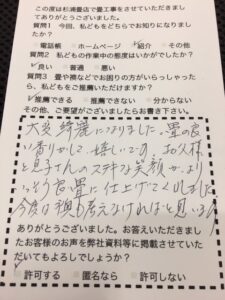 この度は杉浦畳店で畳工事をさせていただきまし
てありがとうございました。
質問1　今回、私どもをどちらでお知りになりまし
たか?
電話帳　ホームページ　紹介　その他
質問2　私どもの作業中の態度はいかがでしたか?
良い　普通　悪い
質問3　畳や襖などでお困りの方がいらっしゃった
ら、私どもをご推薦いただけますか?
推薦できる　推薦できない　分からない
その他、ご要望がございましたらお書き下さい。
大変綺麗になりました。畳の良
い香りがして、嬉しいです。お父様
と息子さんのステキな笑顔が、より
いっそう良い畳に仕上げてくれました
今度は襖も考えなければと思いまし
ありがとうございました。お答えいただきまし
たお客様のお声を弊社資料等に掲載させていた
だいてもよろしでしょうか?
許可する　匿名なら　許可しない